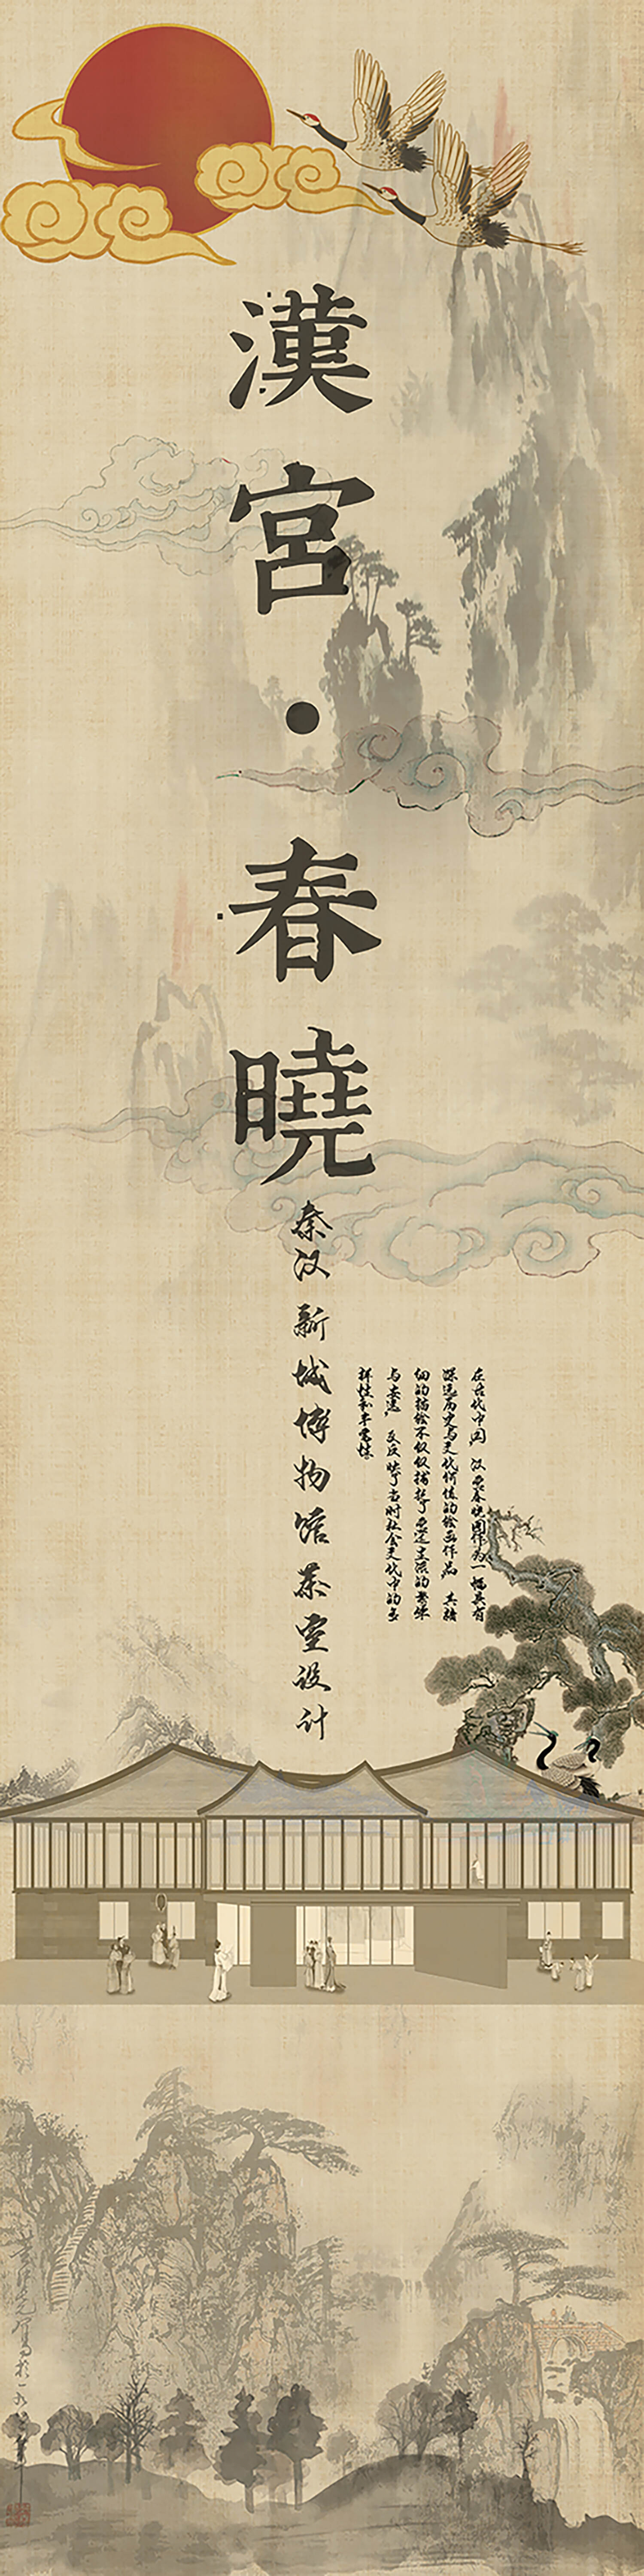 漢宮·春曉
秦汉新城博物馆茶室设计
在古代中国，汉宫春晓图作为一幅具有
深远历史与文化价值的绘画作品，其精
细的描绘不仅仅捕捉了宫廷生活的奢华
与哀愁，更反映了当时社会文化中的多
样性和丰富性。